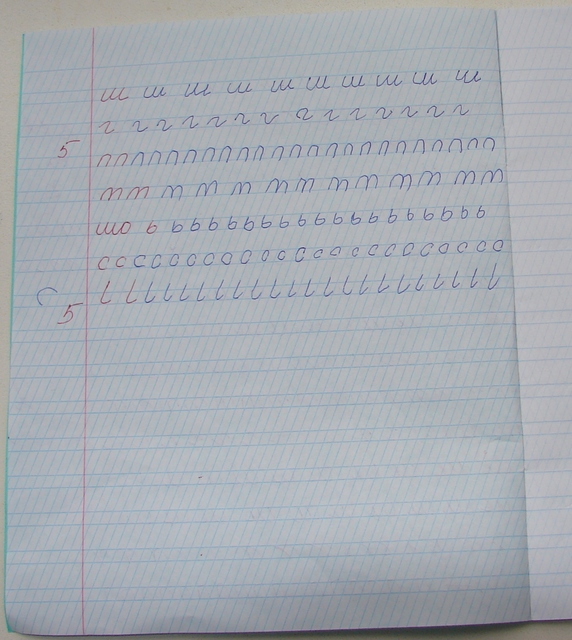 ш ш ш ш ш ш ш ш ш ш
г г г г г г г г г г г г г г
5
п п п п п п п п п п п п п п п п п п п п п п
т т т т т т т т т т т т т
шо ь ь ь ь ь ь ь ь ь ь ь ь ь ь ь ь ь ь ь
с с с с с с с с с с с с с с с с с с с с с с
5